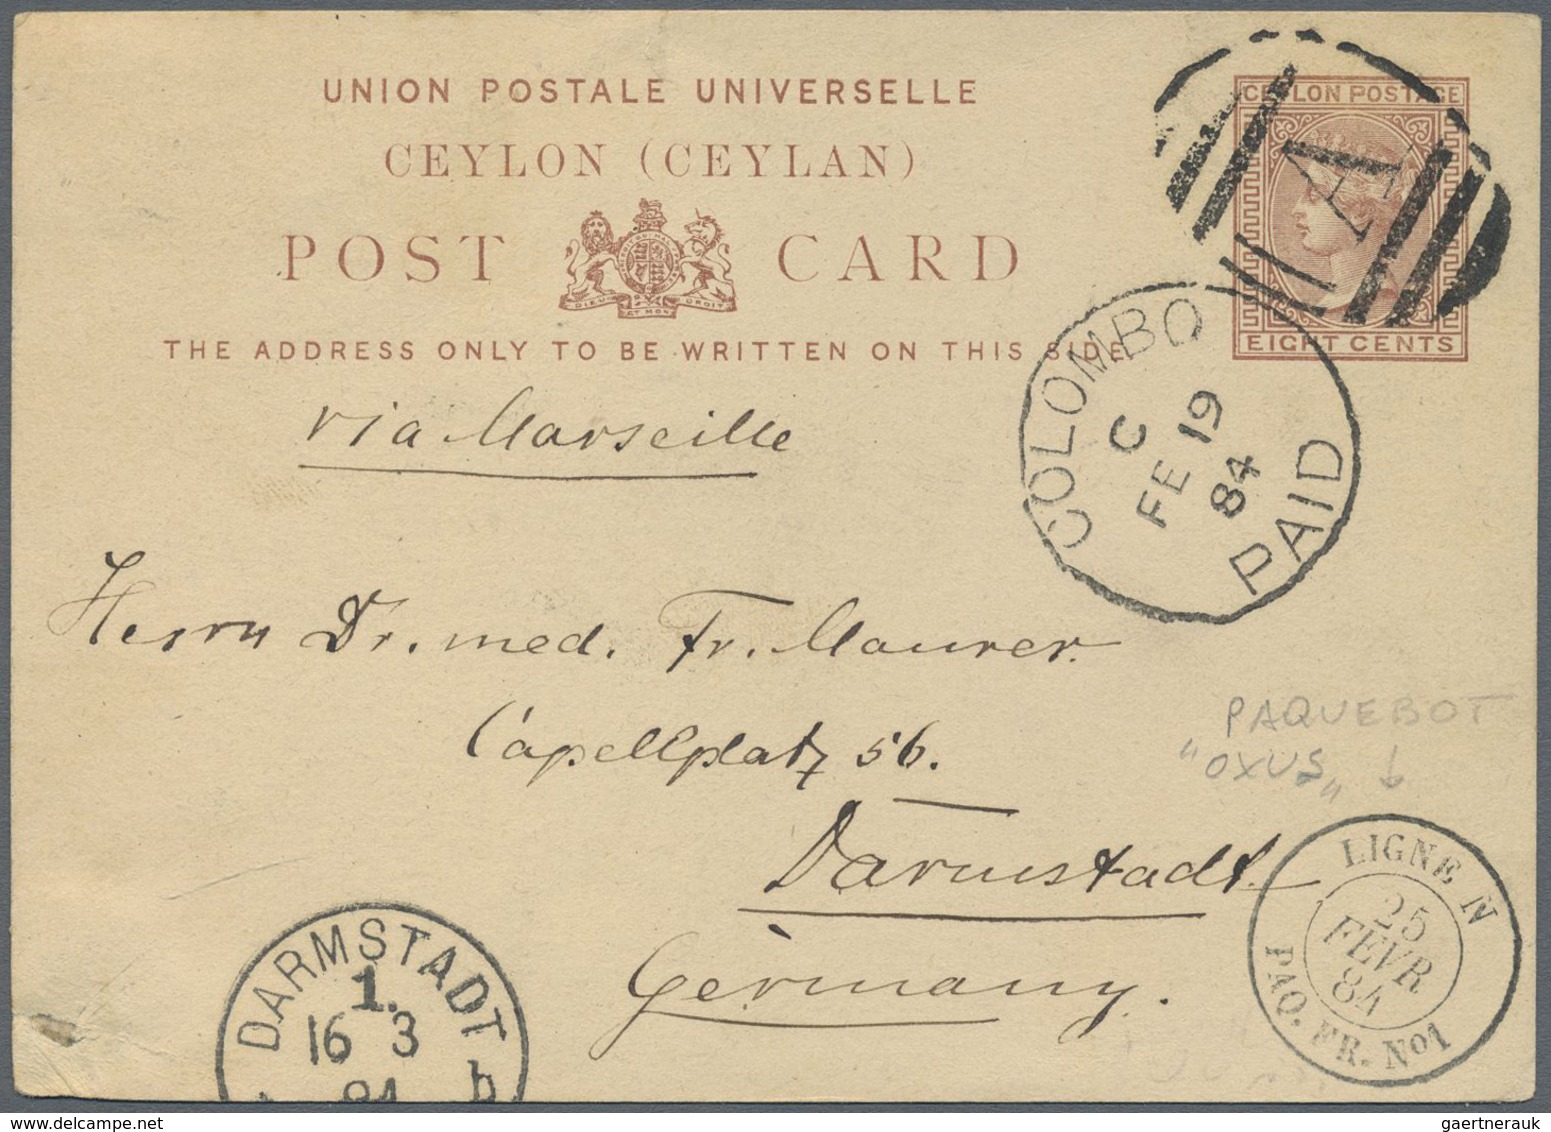 UNION POSTALE UNIVERSELLE
CEYLON (CEYLAN)
POST CARD
DIEU ET MON DROIT
THE ADDRESS ONLY TO BE WRITTEN ON THIS SIDE.
CEYLON POSTAGE
EIGHT CENTS
A
COLOMBO
C
FE 19
84
PAID
via Marseille
Herrn Dr. med. Fr. Maurer.
Capellplatz 56.
Darmstadt.
Germany.
PAQUEBOT
„OXUS„ ↓
LIGNE N
25
FEVR
84
PAQ. FR. No1
DARMSTADT
1.
16 3
84
b
gaertnerauk @ delcampe.net